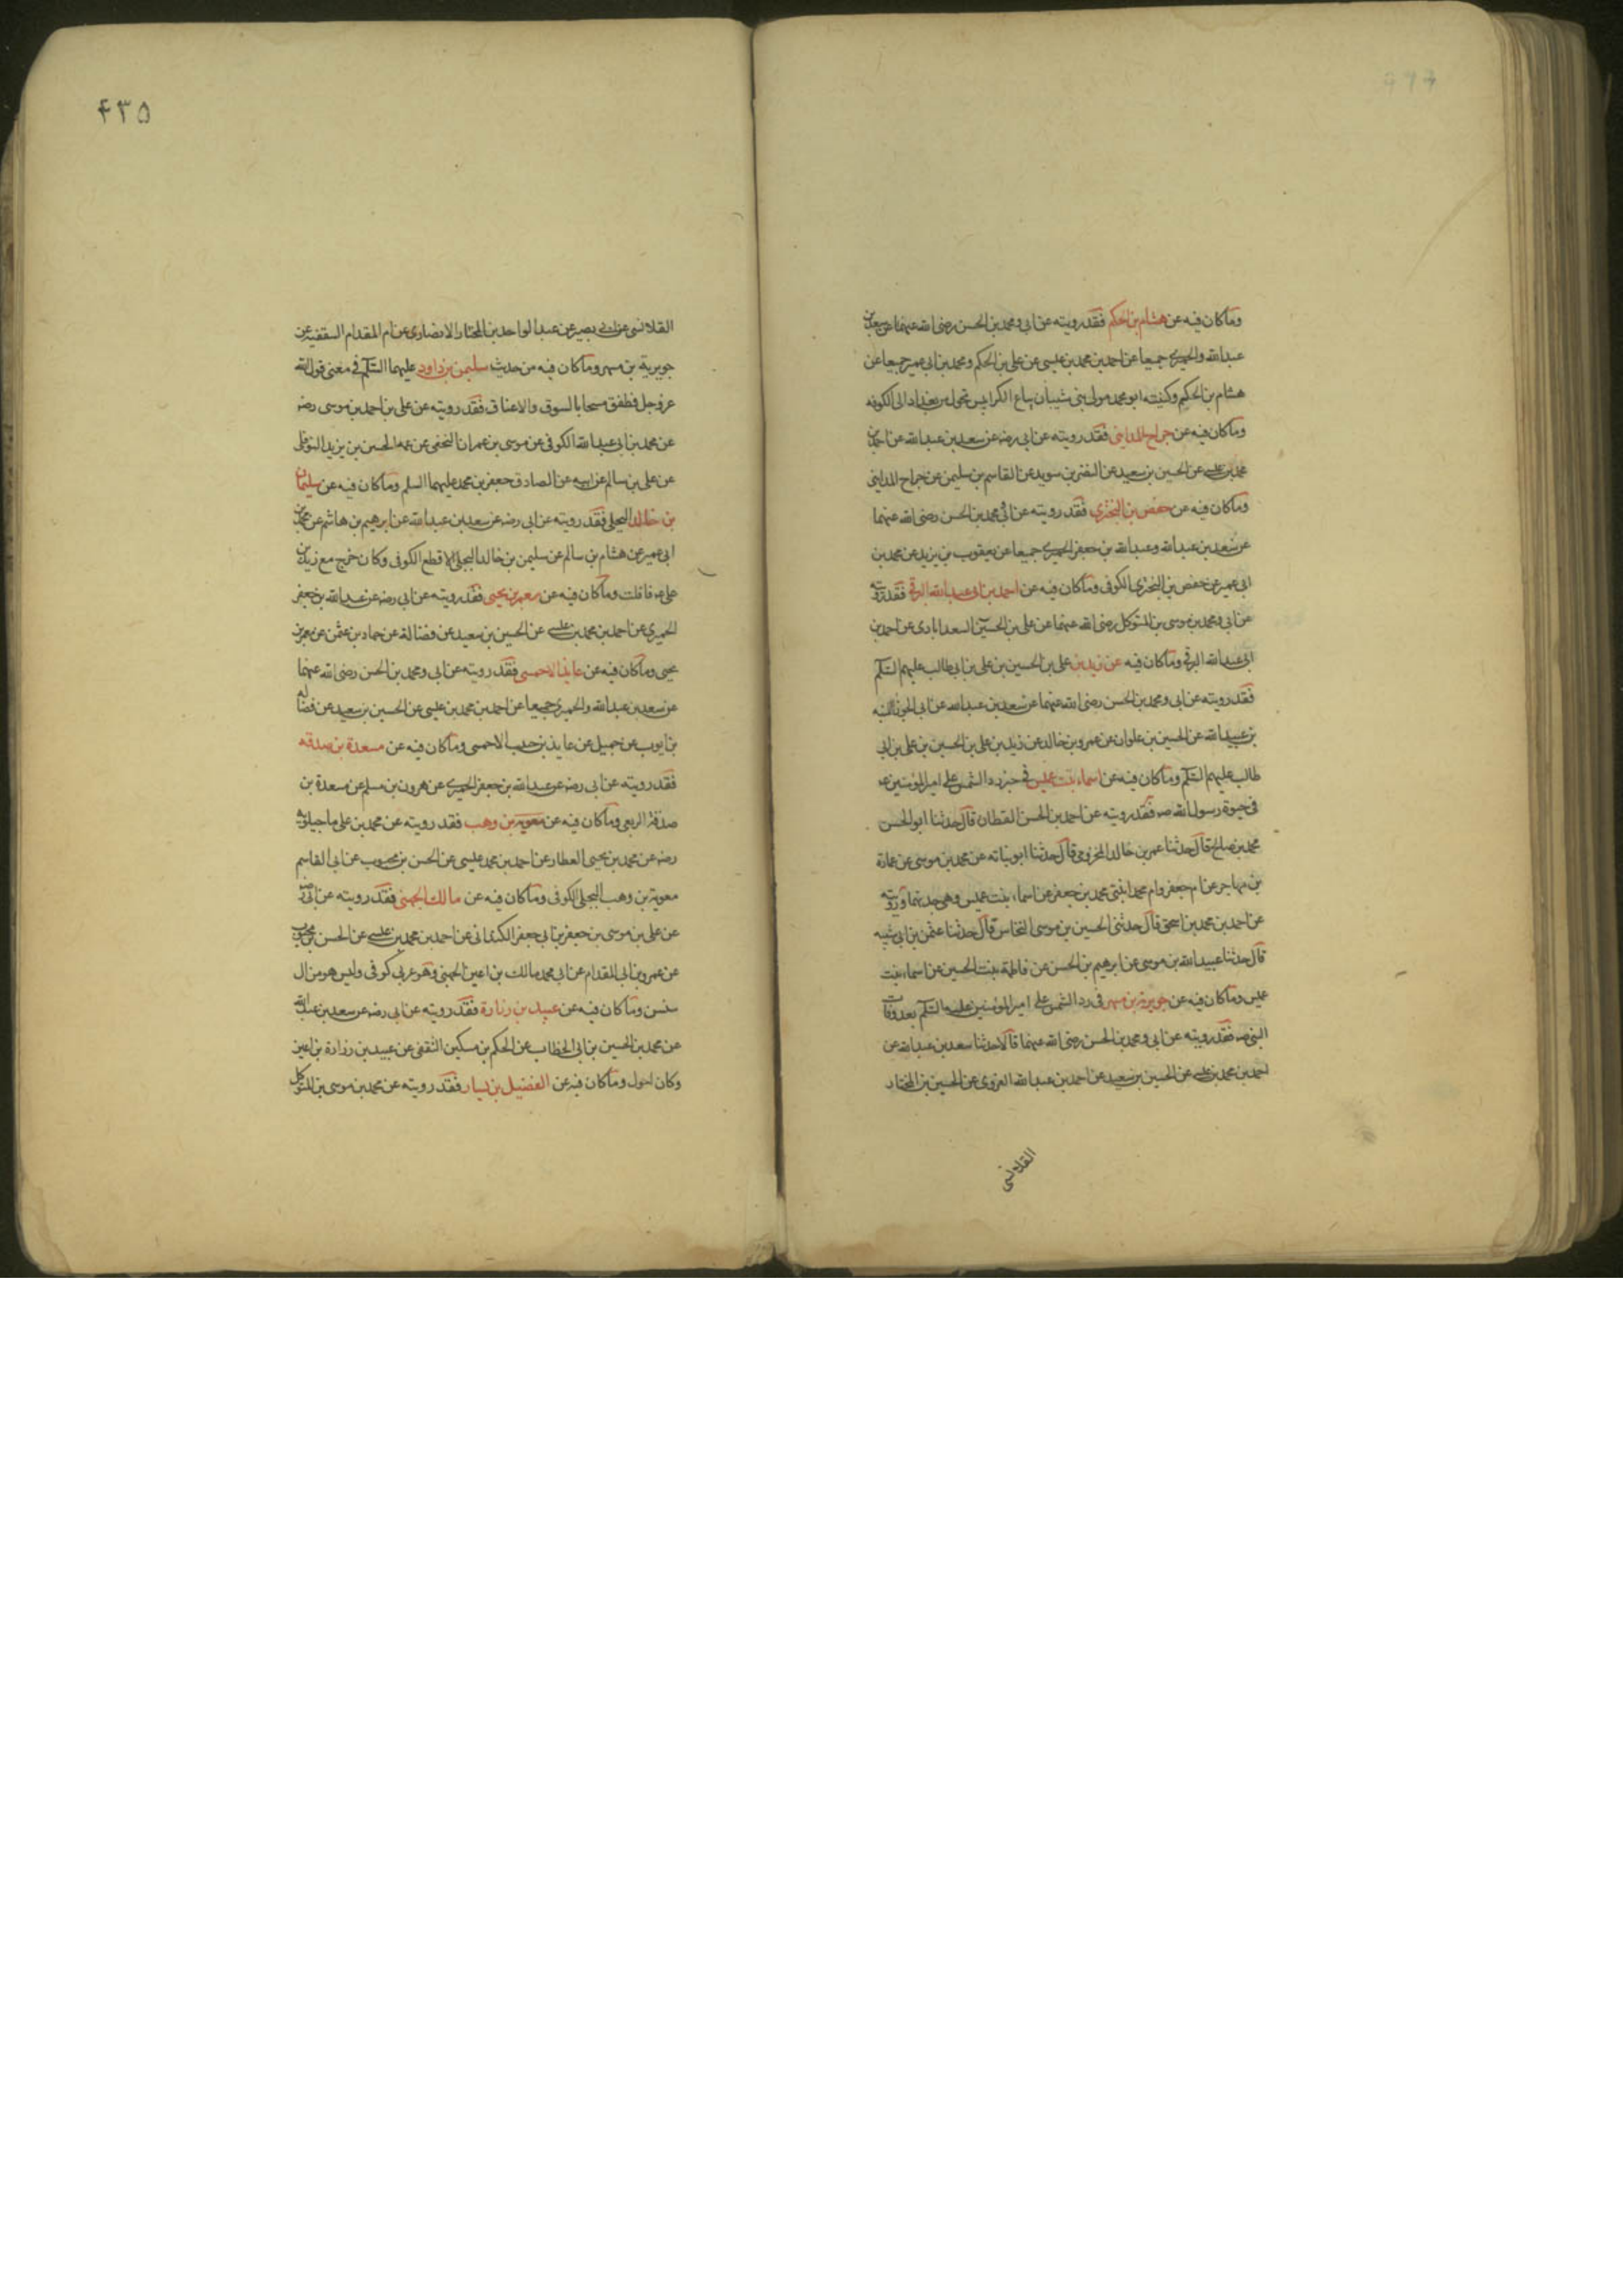 وما كان فيه عن هشام بن الحكم فقد رويته عن ابى ومحمد بن الحسن رضى الله عنهما عن سعد بن
عبد الله والحميرى جميعا عن احمد بن محمد بن عيسى عن على بن الحكم ومحمد بن ابى عمير جميعا عن
هشام بن الحكيم وكنيته ابو محمد مولى بنى شيبان بياع الكرابيس تحول من بغداد الى الكوفه
وما كان فيه عن جراح المداينى فقد رويته عن ابى رضه عن سعد بن عبد الله عن احمد بن
محمد بن عيسى عن الحسين بن سعيد عن النضر بن سويد عن القاسم بن سليمن عن جراح المداينى
وما كان فيه عن حفص بن البخترى فقد رويته عن ابى ومحمد بن الحسن رضى الله عنهما
عن سعد بن عبد الله وعبد الله بن جعفر الحميرى جميعا عن يعقوب بن يزيد عن محمد بن
ابى عمير عن حفص بن البخترى الكوفى وما كان فيه عن احمد بن ابى عبد الله البرقى فقد رويته
عن ابى ومحمد بن موسى بن المتوكل رضى الله عنهما عن على بن الحسين السعدابادى عن احمد بن
ابى عبد الله البرقى وما كان فيه عن زيد بن على بن الحسين بن على بن ابى طالب عليهم السلم
فقد رويته عن ابى ومحمد بن الحسن رضى الله عنهما عن سعد بن عبد الله عن ابى الجوزا المنبه
بن عبيد الله عن الحسين بن علوان عن عمرو بن خالد عن زيد بن على بن الحسين بن على بن ابى
طالب عليهم السلم وما كان فيه عن اسماء بنت عميس فى خبر رد الشمس على امير المؤمنين ع
فى حيوة رسول الله صه فقد رويته عن احمد بن الحسن القطان قال حدثنا ابو الحسن
محمد بن صالح قال حدثنا عمر بن خالد المخزومى قال حدثنا ابو نباته عن محمد بن موسى عن عمارة
بن مهاجر عن ام جعفر وام محمد ابنتى محمد بن جعفر عن اسماء بنت عميس وهى جدتهما ورويته
عن احمد بن محمد بن اسحق قال حدثنى الحسين بن موسى النخاس قال حدثنا عثمن بن ابى شيبه
قال حدثنا عبيد الله بن موسى عن ابرهيم بن الحسن عن فاطمة بنت الحسين عن اسماء بنت
عميس وما كان فيه عن جويرية بن مسهر فى رد الشمس على امير المؤمنين عليه السلم بعد وفات
النبى صه فقد رويته عن ابى ومحمد بن الحسن رضى الله عنهما قالا حدثنا سعد بن عبد الله عن
احمد بن محمد بن عيسى عن الحسين بن سعيد عن احمد بن عبد الله القروى عن الحسين بن المختار
القلانسى
۴۳۵
القلانسى عن ابى بصير عن عبد الواحد بن المختار الانصارى عن ام المقدام السقفيه عن
جويرية بن مسهر وما كان فيه من حديث سليمن بن داود عليهما السلم فى معنى قول الله
عز وجل فطفق مسحا بالسوق والاعناق فقد رويته عن على بن احمد بن موسى رضه
عن محمد بن ابى عبد الله الكوفى عن موسى بن عمران النخعى عن عمه الحسين بن يزيد النوفلى
عن على بن سالم عن ابيه عن الصادق جعفر بن محمد عليهما السلم وما كان فيه عن سليمان
بن خالد البجلى فقد رويته عن ابى رضه عن سعد بن عبد الله عن ابرهيم بن هاشم عن محمد بن
ابى عمير عن هشام بن سالم عن سليمن بن خالد البجلى الاقطع الكوفى وكان خرج مع زيد بن
على ع فافلت وما كان فيه عن معمر بن يحيى فقد رويته عن ابى رضه عن عبد الله بن جعفر
الحميرى عن احمد بن محمد بن عيسى عن الحسين بن سعيد عن فضالة عن حماد بن عثمن عن معمر بن
يحيى وما كان فيه عن عايذ الاحمسى فقد رويته عن ابى ومحمد بن الحسن رضى الله عنهما
عن سعد بن عبد الله والحميرى جميعا عن احمد بن محمد بن عيسى عن الحسين بن سعيد عن فضاله
بن ايوب عن جميل عن عايذ بن حبيب الاحمسى وما كان فيه عن مسعدة بن صدقه
فقد رويته عن ابى رضه عن عبد الله بن جعفر الحميرى عن هرون بن مسلم عن مسعدة بن
صدقة الربعى وما كان فيه عن معوية بن وهب فقد رويته عن محمد بن على ماجيلويه
رضه عن محمد بن يحيى العطار عن احمد بن محمد عيسى عن الحسن بن محبوب عن ابى القاسم
معوية بن وهب البجلى الكوفى وما كان فيه عن مالك الجهنى فقد رويته عن ابى رضه
عن على بن موسى بن جعفر بن ابى جعفر الكمندانى عن احمد بن محمد بن عيسى عن الحسن بن محبوب
عن عمرو بن ابى المقدام عن ابى محمد مالك بن اعين الجهنى وهو عربى كوفى وليس هو من ال
سنسن وما كان فيه عن عبيد بن زرارة فقد رويته عن ابى رضه عن سعد بن عبد الله
عن محمد بن الحسين بن ابى الخطاب عن الحكم بن مسكين الثقفى عن عبيد بن زرارة بن اعين
وكان احول وما كان فيه عن الفضيل بن يسار فقد رويته عن محمد بن موسى بن المتوكل